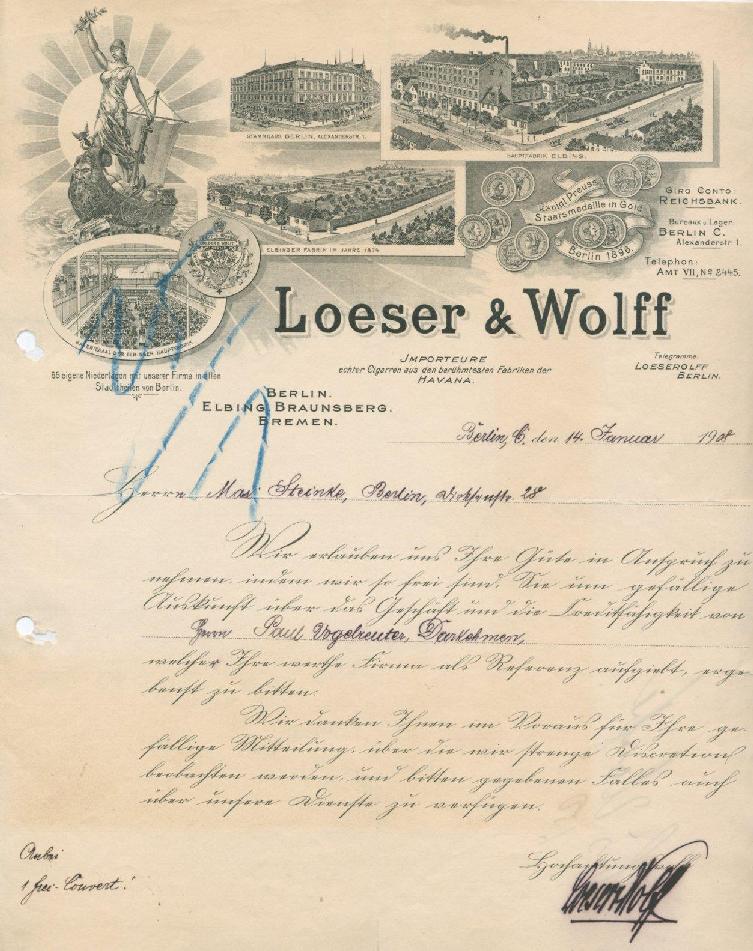 STAMMHAUS BERLIN, ALEXANDERSTR. 1.
HAUPTFABRIK ELBING.
ELBINGER FABRIK IM JAHRE 1874
Königl. Preuss.
Staatsmedaille in Gold
Berlin 1896.
GIRO CONTO
REICHSBANK.
Bureau u. Lager
BERLIN C.
Alexanderstr. 1.
Telephon:
AMT VII, No 2445.
LOESER & WOLFF
Loeser & Wolff
65 eigene Niederlagen mit unserer Firma in allen
Stadttheilen von Berlin.
IMPORTEURE
echter Cigarren aus den berühmtesten Fabriken der
HAVANA.
Telegramme:
LOESEROLFF
BERLIN.
BERLIN.
ELBING, BRAUNSBERG.
BREMEN.
Berlin, C. den 14. Januar 1908
Herrn Max Steinke, Berlin, Dirksenstr. 28
Wir erlauben uns Ihre Güte in Anspruch zu
nehmen, indem wir so frei sind, Sie um gefällige
Auskunft über das Geschäft und die Creditfähigkeit von
Herrn Paul Vogelreuter, Darkehmen,
welcher Ihre werthe Firma als Referenz aufgiebt, erge-
benst zu bitten.
Wir danken Ihnen im Voraus für Ihre ge-
fällige Mitteilung, über die wir strenge Discretion
beobachten werden, und bitten gegebenen Falles auch
über unsere Dienste zu verfügen.
Hochachtungsvoll
Loeser & Wolff
Anbei
1 frei-Couvert!